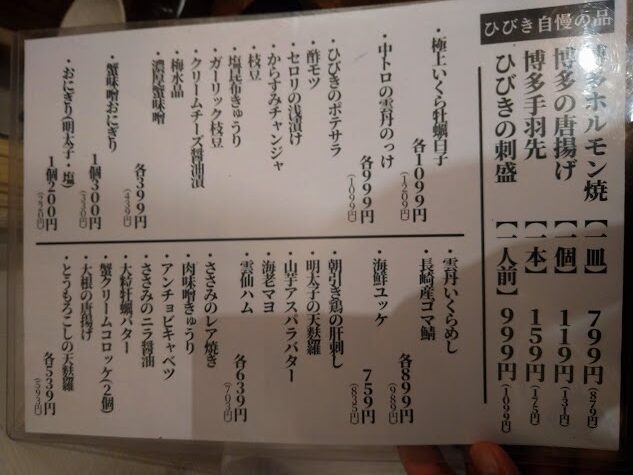 ひびき自慢の品
博多ホルモン焼【一皿】799円(879円)
博多の唐揚げ【一個】119円(131円)
博多手羽先【一本】159円(175円)
ひびきの刺盛【一人前】999円(1099円)
・極上いくら牡蠣白子
各1099円
(1209円)
・中トロの雲丹のっけ
各999円
(1099円)
・ひびきのポテサラ
・酢モツ
・セロリの浅漬け
・からすみチャンジャ
・枝豆
・塩昆布きゅうり
・ガーリック枝豆
・クリームチーズ醤油漬
・梅水晶
・濃厚蟹味噌
各399円
(439円)
・蟹味噌おにぎり
1個300円
(330円)
・おにぎり(明太子・塩)
1個200円
(220円)
・雲丹いくらめし
・長崎産ゴマ鯖
各899円
(989円)
・海鮮ユッケ
759円
(835円)
・朝引き鶏の肝刺し
・明太子の天麩羅
・山芋アスパラバター
・海老マヨ
・雲仙ハム
各639円
(703円)
・ささみのレア焼き
・肉味噌きゅうり
・アンチョビキャベツ
・ささみのニラ醤油
・大粒牡蠣バター
・蟹クリームコロッケ(2個)
・大根の唐揚げ
・とうもろこしの天麩羅
各539円
(593円)